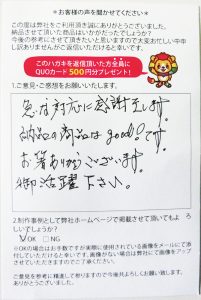 ＊お客様の声を聞かせてください＊
この度は弊社をご利用頂き誠にありがとうございました。
納品させて頂いた商品はいかがだったでしょうか？
今後の参考にさせて頂きたいと思いますので大変お忙しい中申
し訳ありませんがご返信いただけると幸いです。
このハガキを返信頂いた方全員に
QUOカード500円分プレゼント！
1.ご意見・ご感想をお願いいたします。
急な対応に感謝します。
納品の商品は good! です。
お箸ありがとうございます。
御活躍下さい。
2.制作事例として弊社ホームページで掲載させて頂いてもよろ
しいでしょうか？
OK □NG
※OKの場合はお手数ですが実際に使用されている画像をメールにて添
付していただけると幸いです。画像がない場合は弊社にて画像をアップ
させていただきますのでご了承ください。
ご意見を参考に精進して参りますので今後共よろしくお願い致します。
ありがとうございました。